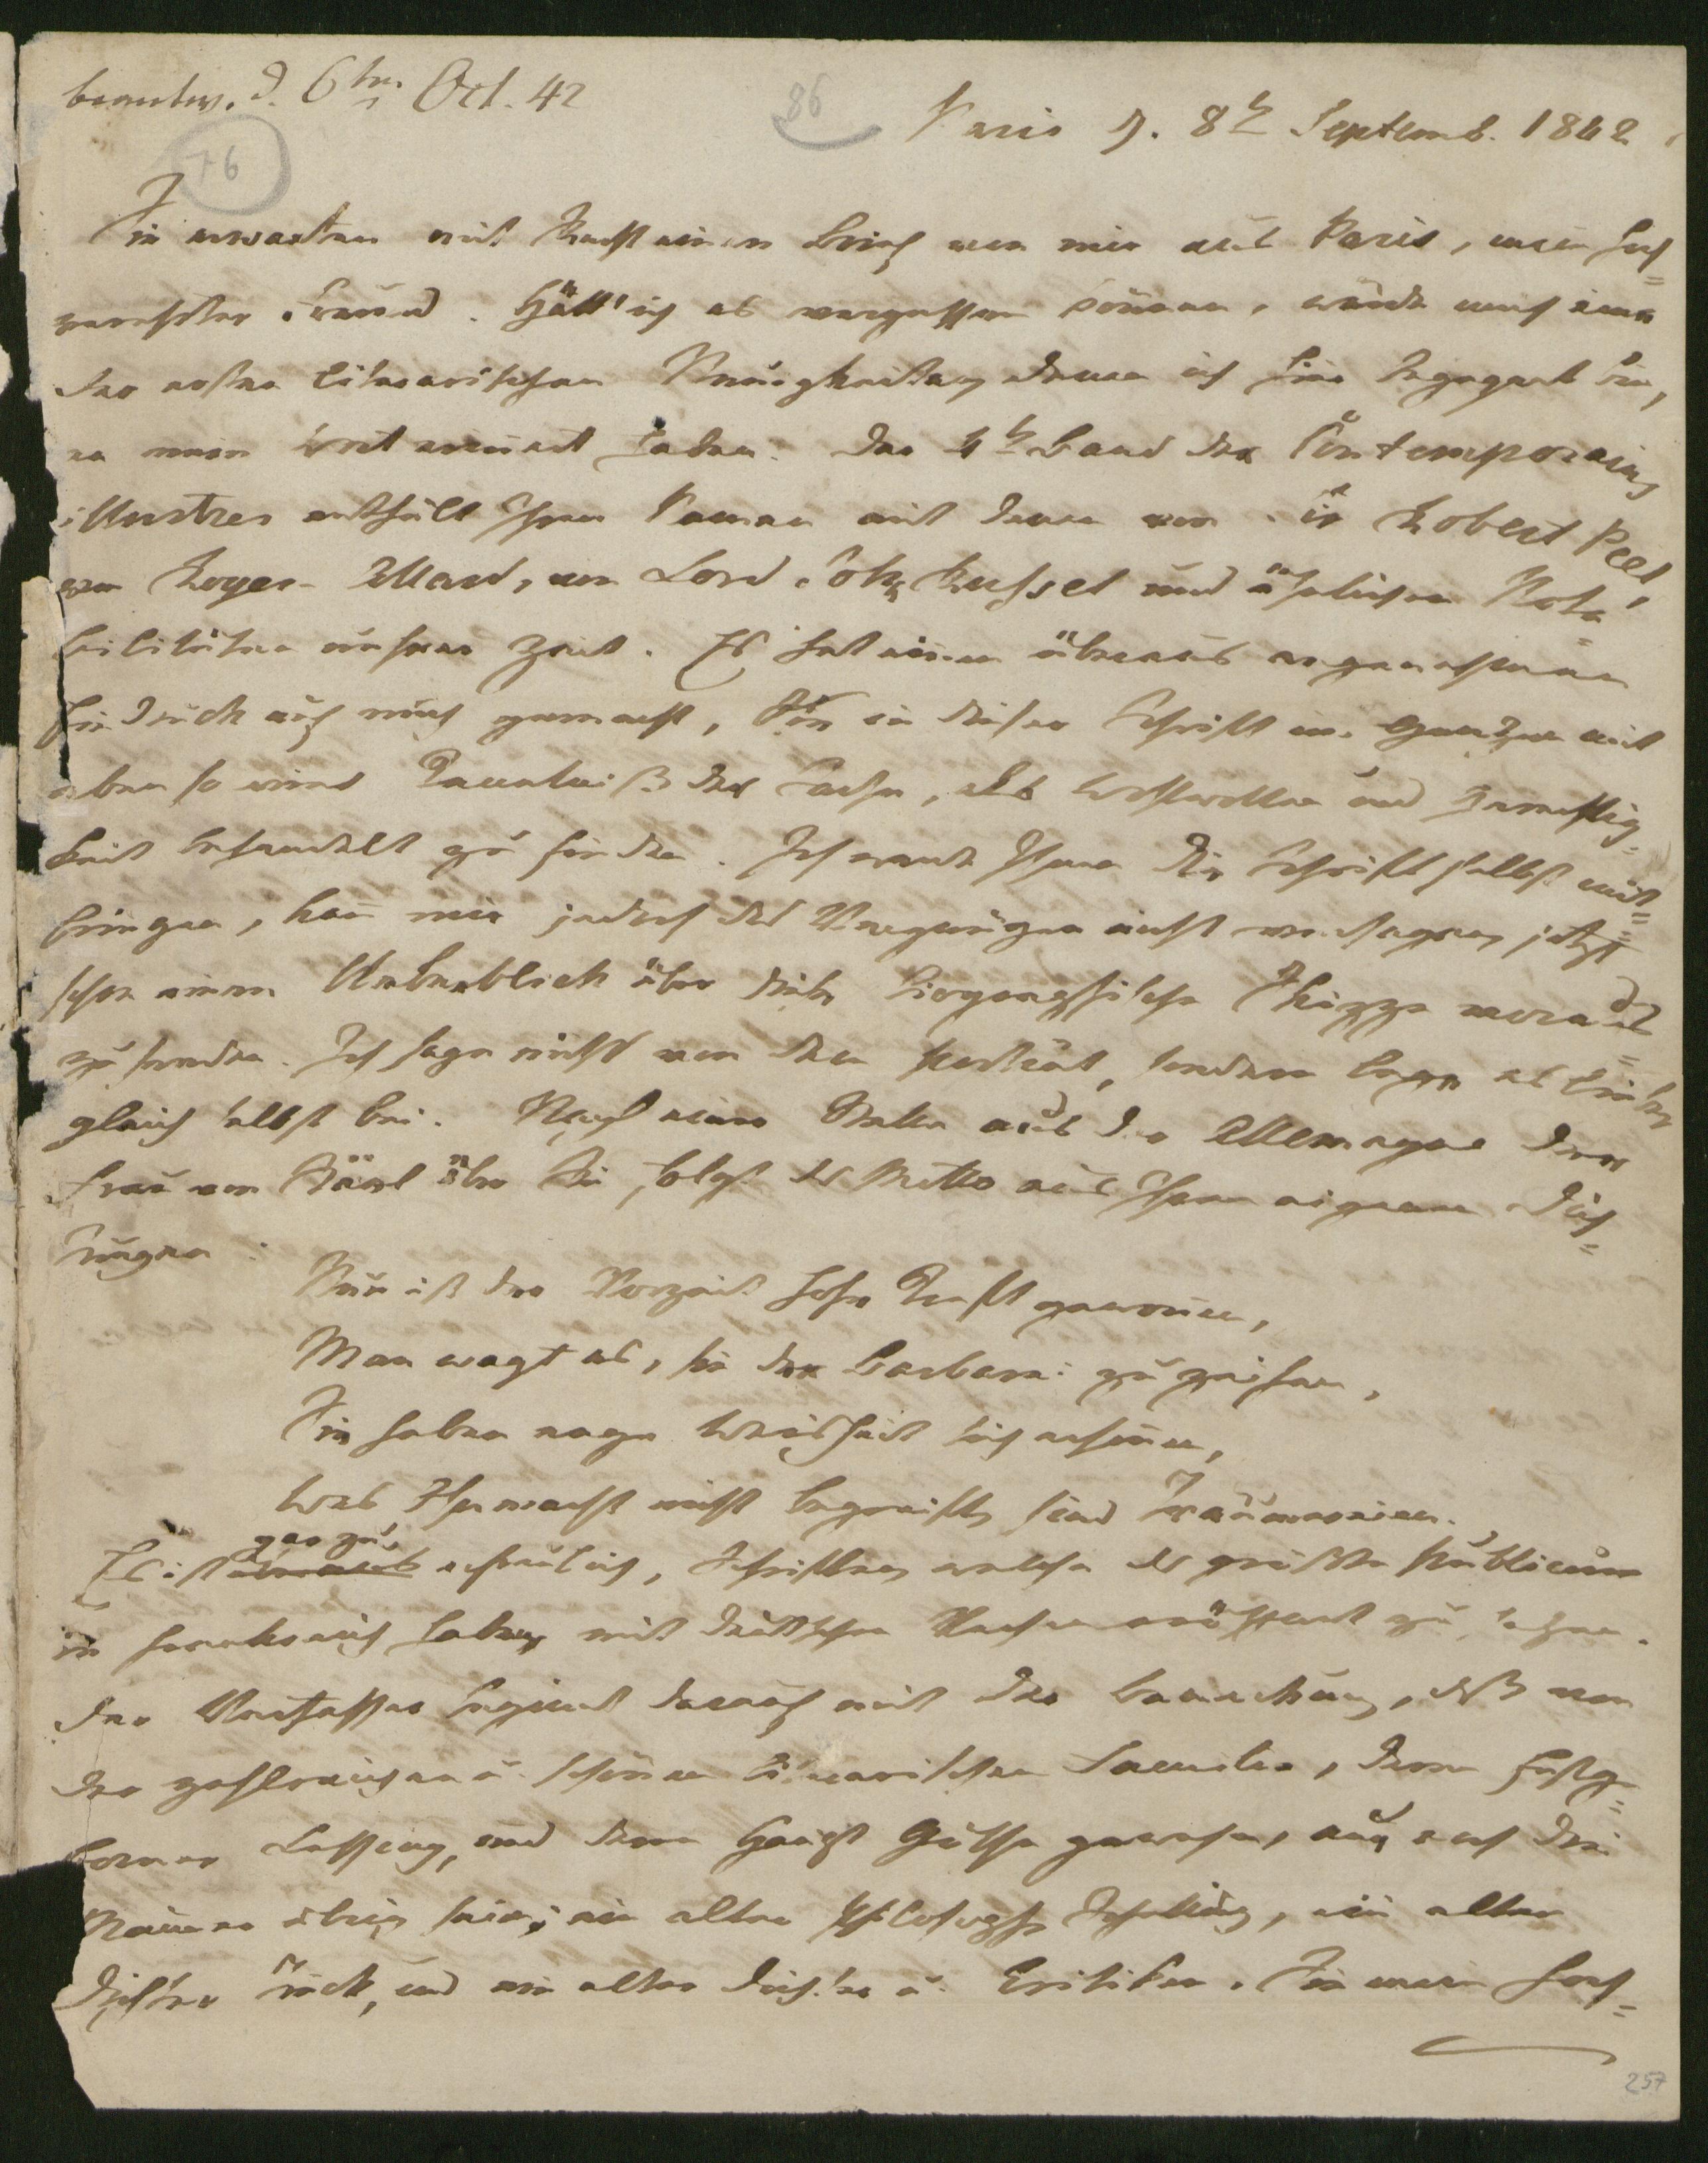 beantw. d. 6ten Oct. 42
86
Paris d. 8t Septemb. 1842
76
Sie erwarten mit Recht einen Brief von mir aus Paris, mein hoch=
verehrter Freund. Hätt' ich es vergessen können, würde mich eine
der ersten literarischen Neuigkeiten, denen ich hier begegnet bin,
an mein Wort erinnert haben. Der 4t Band der Contemporains
illustres enthält Ihren Namen mit denen von Sir Robert Peel,
von Royer-Collard, von Lord John Russel und ähnlichen Nota=
bilitäten unserer Zeit. Es hat einen überaus angenehmen
Eindruck auf mich gemacht, Sie in dieser Schrift im Ganzen mit
eben so viel Kenntniß der Sache, als Wohlwollen und Gerechtig=
keit behandelt zu finden. Ich werde Ihnen die Schrift selbst mit=
bringen, kan mir jedoch das Vergnügen nicht versagen, jetzt
schon einen Ueberblick über diese biographische Skizze voraus=
zusenden. Ich sage nichts von dem Portrait, sondern lege es lieber
gleich selbst bei. Nach einer Stelle aus der Allemagne der
Frau von Stäel über Sie folgt als Motto aus Ihren eigenen Dich=
tungen:
Nun ist der Vorzeit hohe Kraft zerronnen,
Man wagt es, sie der Barbarei zu zeihen,
Sie haben enge Weisheit sich ersonnen,
Was Ohnmacht nicht begreift, sind Träumereien.
gar zu
Es ist überaus erfreulich, Schriften, welche das größte Publicum
in Frankreich haben, mit deutschen Versen eröffnet zu sehen.
Der Verfasser beginnt darauf mit der Bemerkung, daß von
der zahlreichen u. schönen literarischen Familie, deren Erstge=
borner Lessing, und deren Haupt Göthe gewesen, nur noch drei
Männer übrig seien; ein alter Philosoph, Schelling, ein alter
Dichter Tieck, und ein alter Dichter u. Critiker. Sie mein hoch=
257